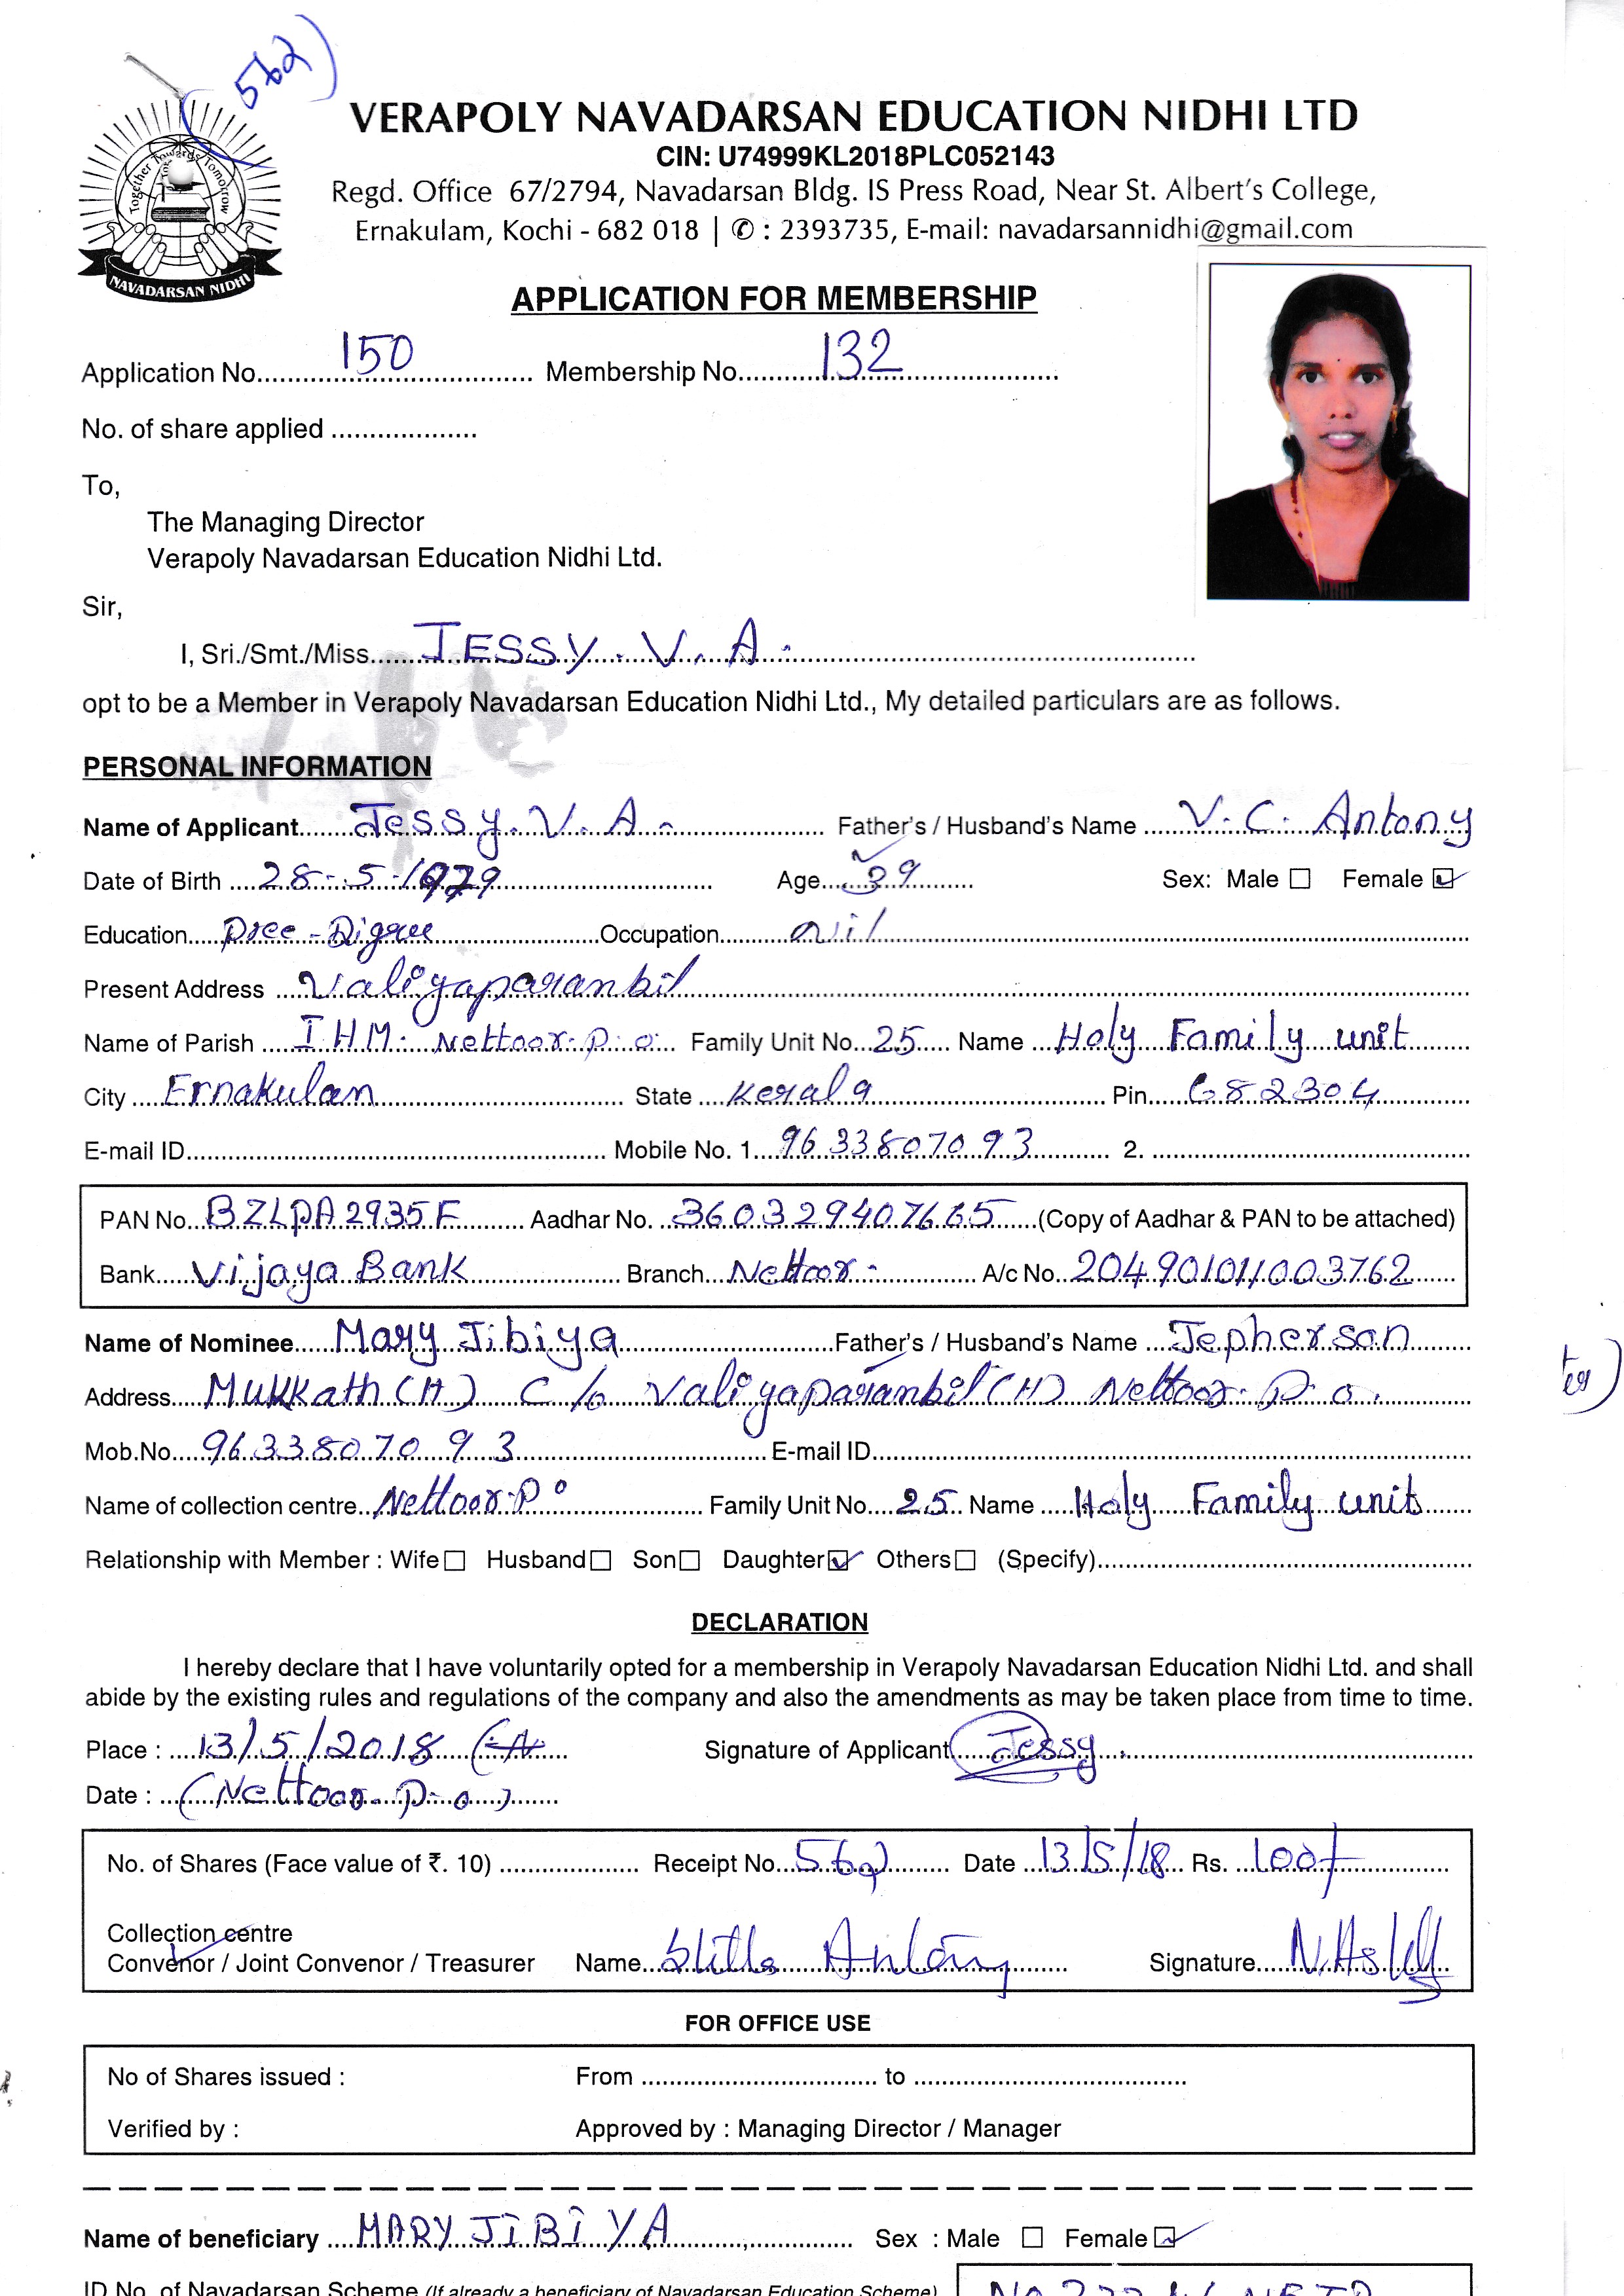 562)
VERAPOLY NAVADARSAN EDUCATION NIDHI LTD
CIN: U74999KL2018PLC052143
Regd. Office 67/2794, Navadarsan Bldg. IS Press Road, Near St. Albert's College,
Ernakulam, Kochi - 682 018 | ✆ : 2393735, E-mail: navadarsannidhi@gmail.com
Together Towards Tomorrow
NAVADARSAN NIDHI
APPLICATION FOR MEMBERSHIP
Application No. 150 Membership No. 132
No. of share applied
To,
The Managing Director
Verapoly Navadarsan Education Nidhi Ltd.
Sir,
I, Sri./Smt./Miss. JESSY. V. A.
opt to be a Member in Verapoly Navadarsan Education Nidhi Ltd., My detailed particulars are as follows.
PERSONAL INFORMATION
Name of Applicant Jessy. V. A. Father's / Husband's Name V. C. Antony
Date of Birth 28-5-1979 Age 39 Sex: Male ☐ Female ☑
Education Pree-Digree Occupation nil
Present Address Valiyaparanbil
Name of Parish IHM. Nettoor. P. O. Family Unit No. 25 Name Holy Family unit
City Ernakulam State Kerala Pin 682304
E-mail ID Mobile No. 1. 9633807093 2.
PAN No. BZLPA2935F Aadhar No. 360329407665 (Copy of Aadhar & PAN to be attached)
Bank Vijaya Bank Branch Nettoor. A/c No. 204901011003762
Name of Nominee Mary Jibiya Father's / Husband's Name Jepherson
Address Mukkath (H) C/o Valiyaparambil (H) Nettoor. P. O.
Mob.No. 9633807093 E-mail ID
Name of collection centre Nettoor. P O Family Unit No. 25 Name Holy Family unit
Relationship with Member : Wife ☐ Husband ☐ Son ☐ Daughter ☑ Others ☐ (Specify)
DECLARATION
I hereby declare that I have voluntarily opted for a membership in Verapoly Navadarsan Education Nidhi Ltd. and shall
abide by the existing rules and regulations of the company and also the amendments as may be taken place from time to time.
Place : 13/5/2018 Signature of Applicant Jessy
Date : (Nettoor. P. O.)
No. of Shares (Face value of ₹. 10) Receipt No. 562 Date 13/5/18 Rs. 100/-
Collection centre
Convenor / Joint Convenor / Treasurer Name Antony Signature
FOR OFFICE USE
No of Shares issued : From to
Verified by : Approved by : Managing Director / Manager
Name of beneficiary MARY JIBIYA Sex : Male ☐ Female ☑
ID No. of Navadarsan Scheme (If already a beneficiary of Navadarsan Education Scheme)